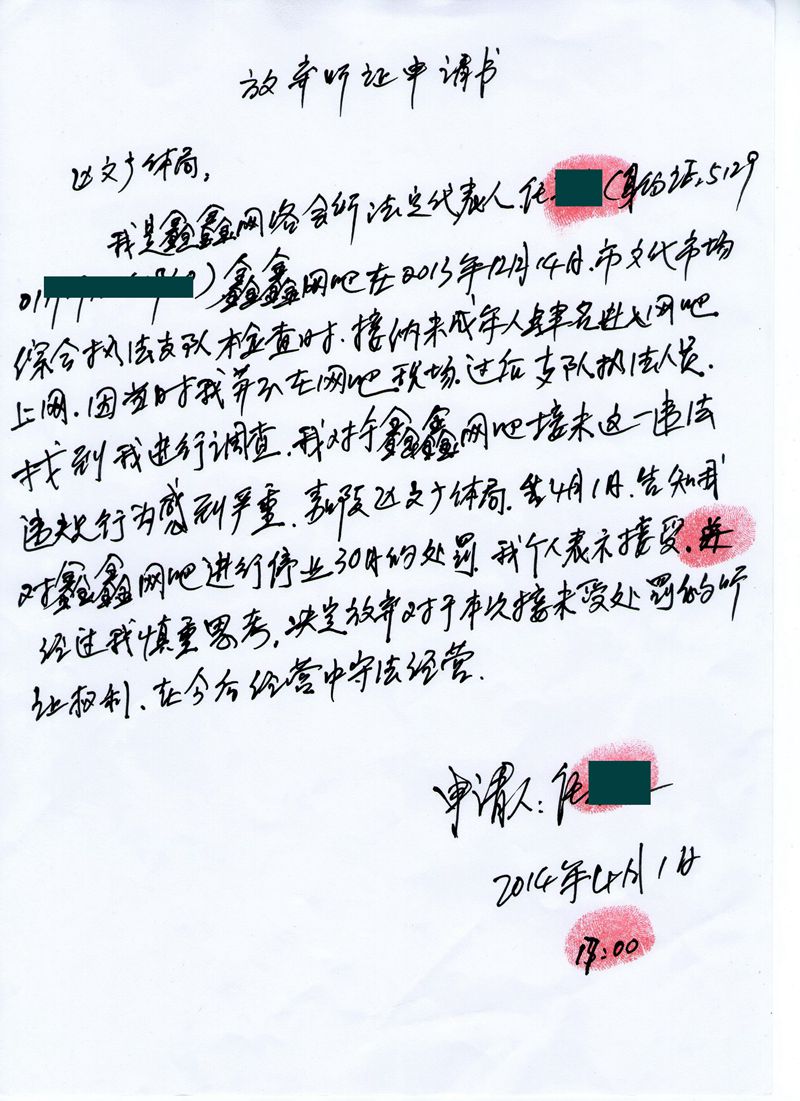 放弃听证申请书
区文广体局。
我是鑫鑫网络会所法定代表人任 (身份证:5129
01 )鑫鑫网吧在2013年12月14日.市文化市场
综合执法支队检查时.接纳未成年人肆名进入网吧
上网.因当时我并不在网吧现场.过后支队执法人员.
找到我进行调查.我对于鑫鑫网吧接未这一违法
违规行为感到严重.嘉陵区文广体局.4月1日.告知我
对鑫鑫网吧进行停业30日的处罚.我个人表示接受.并
经过我慎重思考,决定放弃对于本次接未受处罚的听
证权利.在今后经营中守法经营.
申请人:任
2014年4月1日
:00